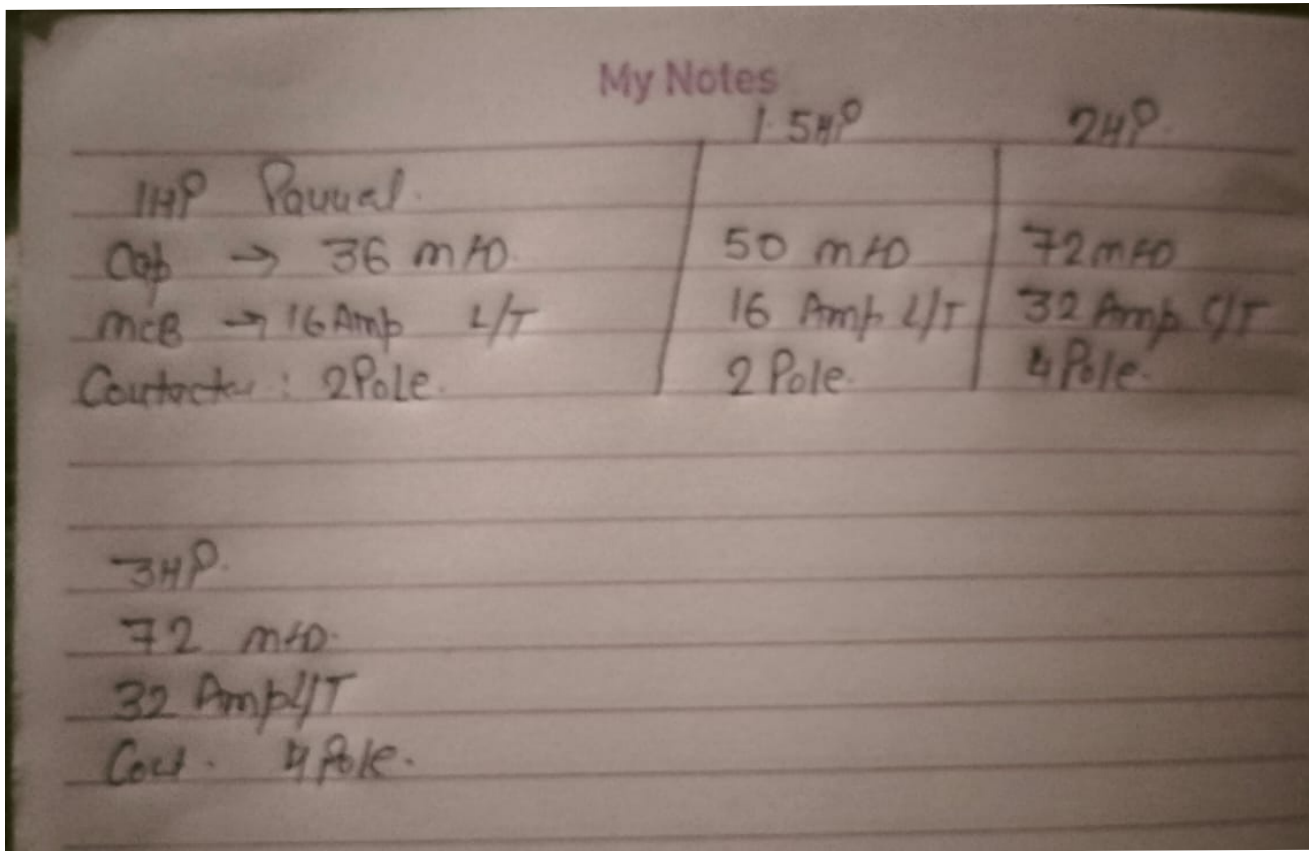 My Notes
1.5HP 2HP.
1HP Pannal.
Cap → 36 mfD. 50 mfD 72 mfD
MCB → 16 Amp L/T 16 Amp L/T 32 Amp L/T
Contactor : 2 Pole. 2 Pole. 4 Pole.
3HP.
72 mfD.
32 Amp L/T
Cont. 4 Pole.